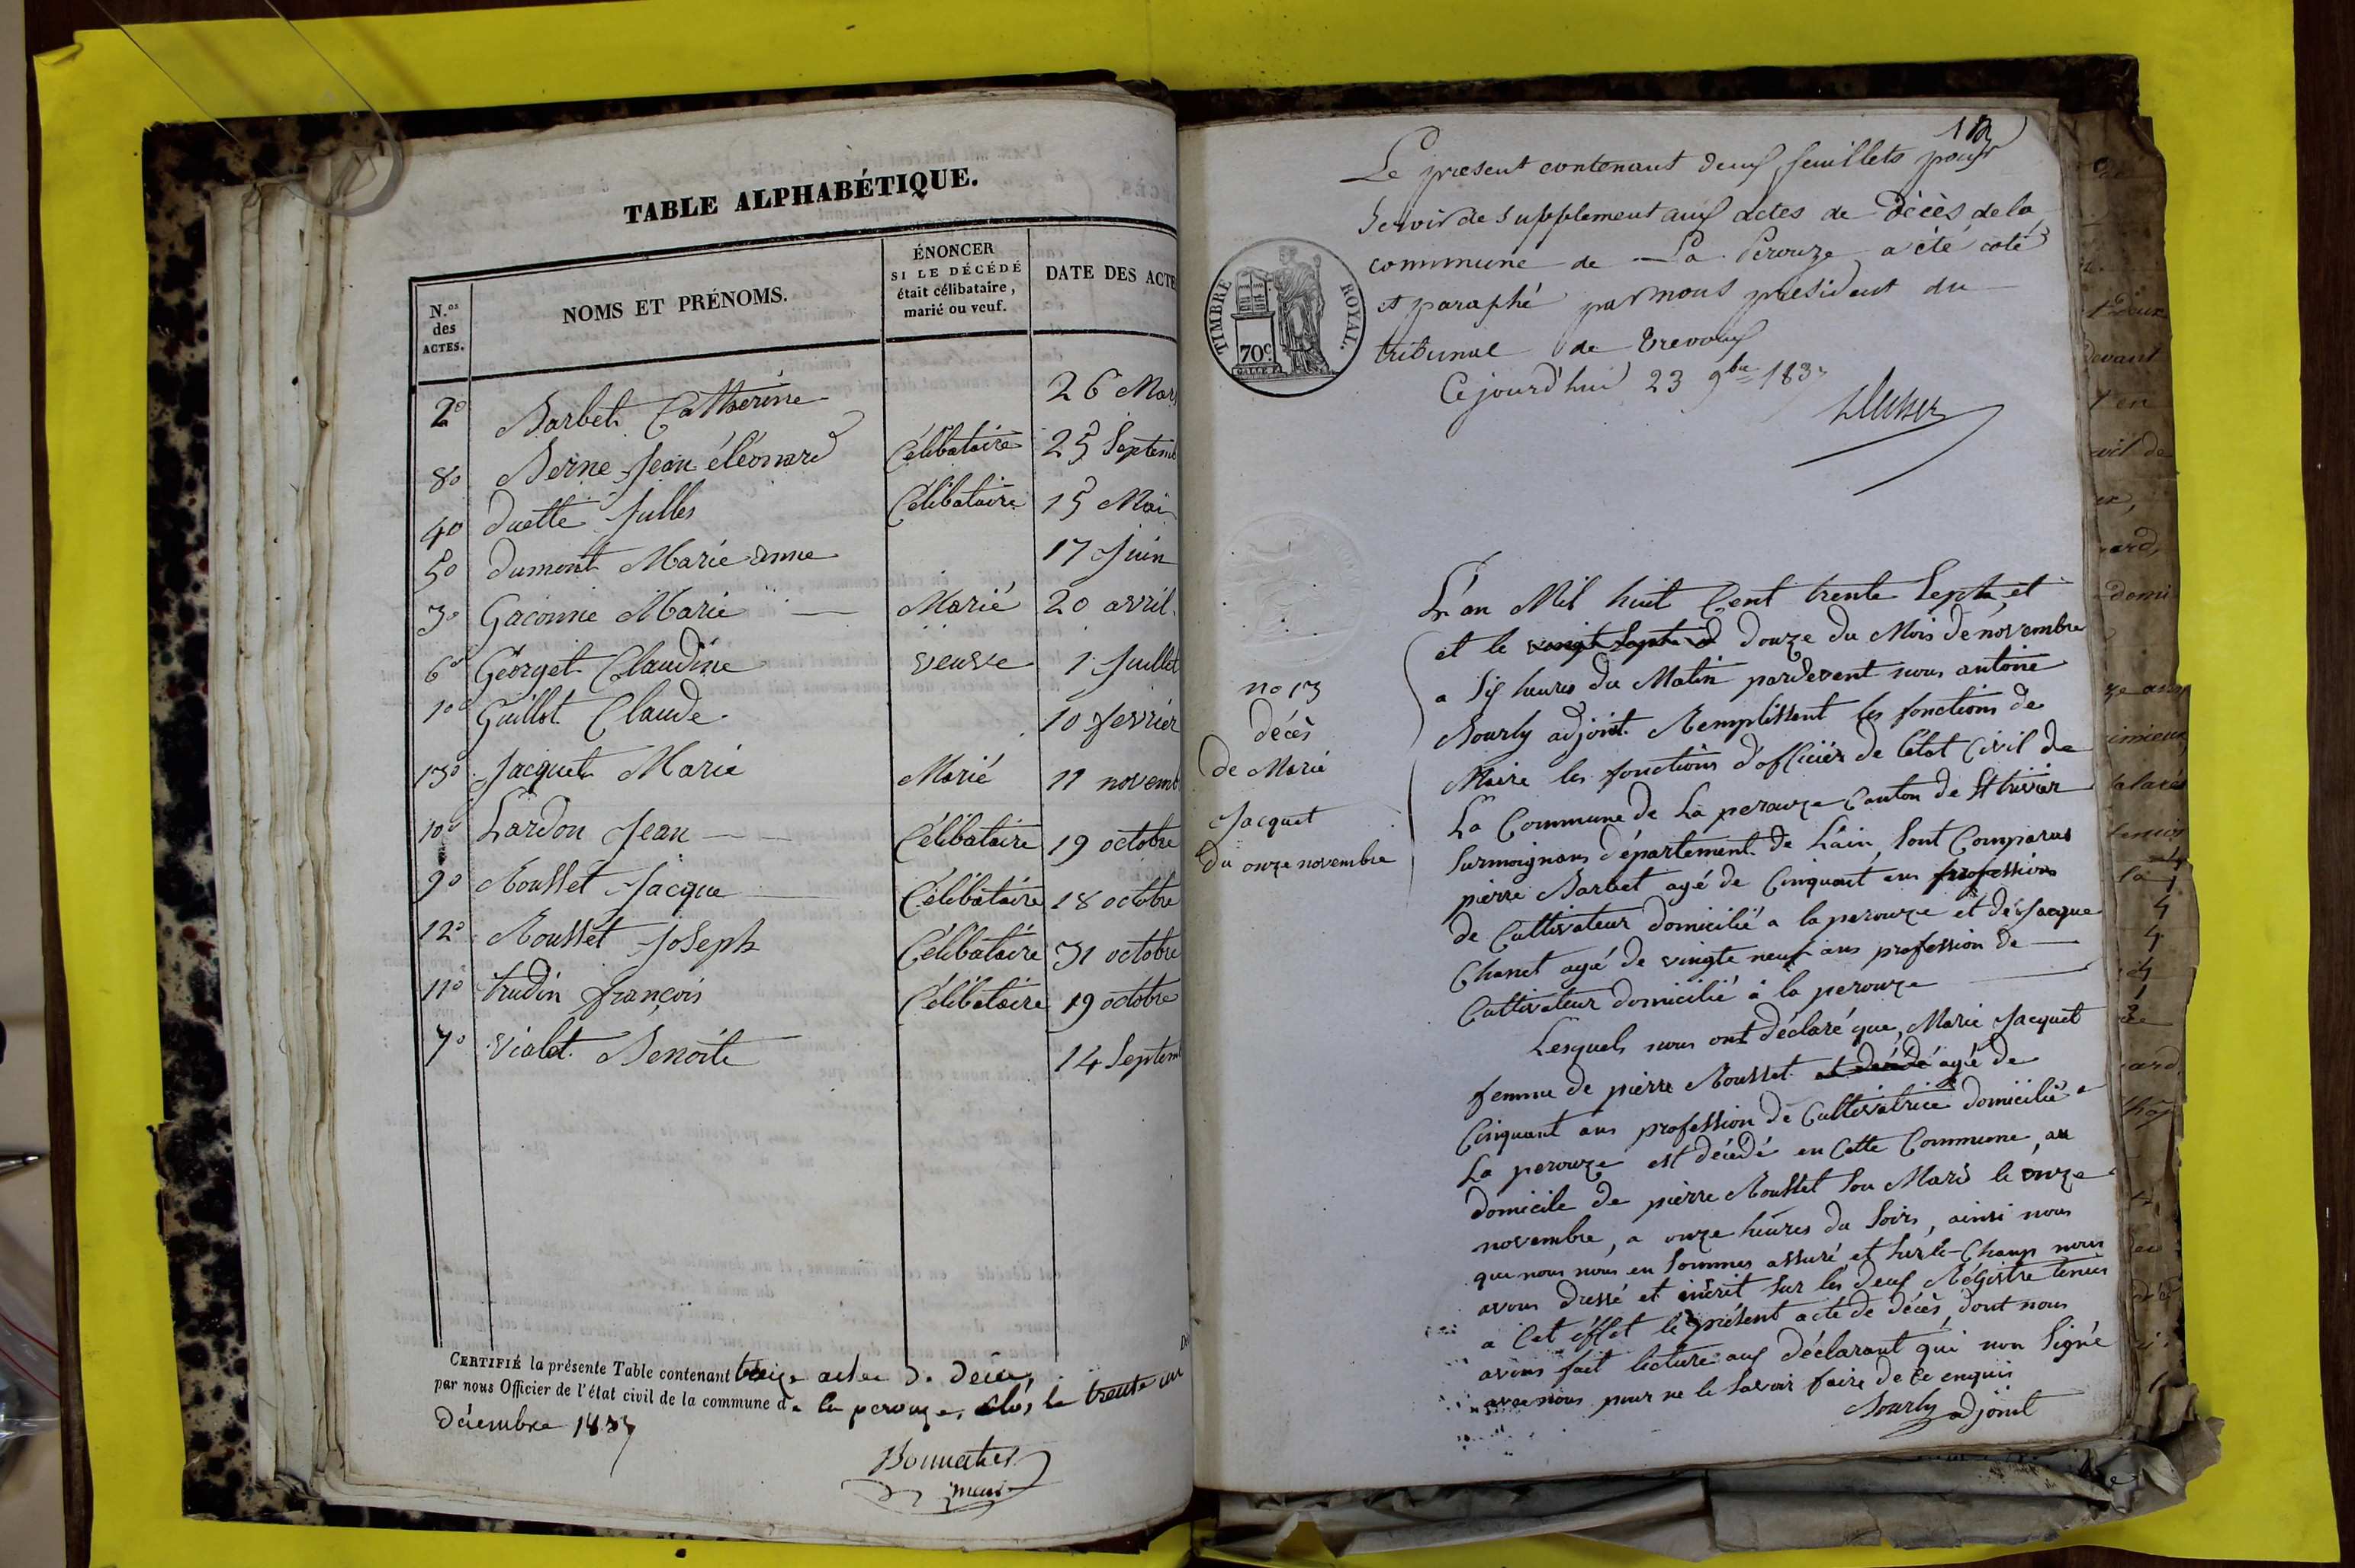 TABLE ALPHABÉTIQUE.
N.os des ACTES.
NOMS ET PRÉNOMS.
ÉNONCER
SI LE DÉCÉDÉ
était célibataire,
marié ou veuf.
DATE DES ACTE
2o Barbet Catherine 26 Mars
8o Berne Jean éléonard Célibataire 25 Septemb
4o duette Julles Célibataire 15 Mai
5o dumont Marie anne 17 Juin
3o Gaconne Marie Marié 20 avril
6o Georget Claudine veuve 1 Juillet
1o Guillot Claude 10 fevrier
13o Jacquet Marie Marié 11 novemb
10o Lardon Jean Célibataire 19 octobre
9o Rousset Jacque Célibataire 18 octobre
12o Rousset Joseph Célibataire 31 octobre
11o trudin françois Célibataire 19 octobre
7o violet Benoite 14 Septem
CERTIFIÉ la présente Table contenant treize actes de décès
par nous Officier de l'état civil de la commune de la perouze, clos le trente un
décembre 1837
maire
Le present contenant deux feuillets pour
servir de supplement aux actes de décès de la
commune de La Perouze a été coté
et paraphé par nous president du
tribunal de Trevoux
Ce jourd'hui 23 9bre 1837
TIMBRE ROYAL.
70c
no 13
décès
de Marie
Jacquet
du onze novembre
L'an Mil huit Cent trente Sept, et
et le vingt Sept d douze du Mois de novembre
a Six heures du Matin pardevent nous antoine
Bourly adjoint Remplissent les fonctions de
Maire les fonctions d'officier de l'état Civil de
La Commune de La perouze Canton de St trivier
Surmoignans département de L'ain, Sont Comparus
pierre Barbet agé de Cinquant ans profession
de Cultivateur domicilié a la perouze et de Jacque
Chanet agé de vingte neuf ans profession de
Cultivateur domicilié à la perouze
Lesquels nous ont déclaré que, Marie Jacquet
femme de pierre Rousset et décédé agé de
Cinquant ans profession de Cultivatrice domicilié a
La perouze est décédé en Cette Commune, au
domicile de pierre Rousset Son Mari le onze
novembre, a onze heures du Soirs, ainsi nous
que nous nous en Sommes assuré et Sur le-Champ nous
avons dressé et inscrit Sur les deux Régistre tenus
a Cet éffet le présent acte de décès, dont nous
avons fait lecture aux déclarant qui non Signé
avec nous pour ne le Savoir faire de Ce enquis
Bourly adjoint